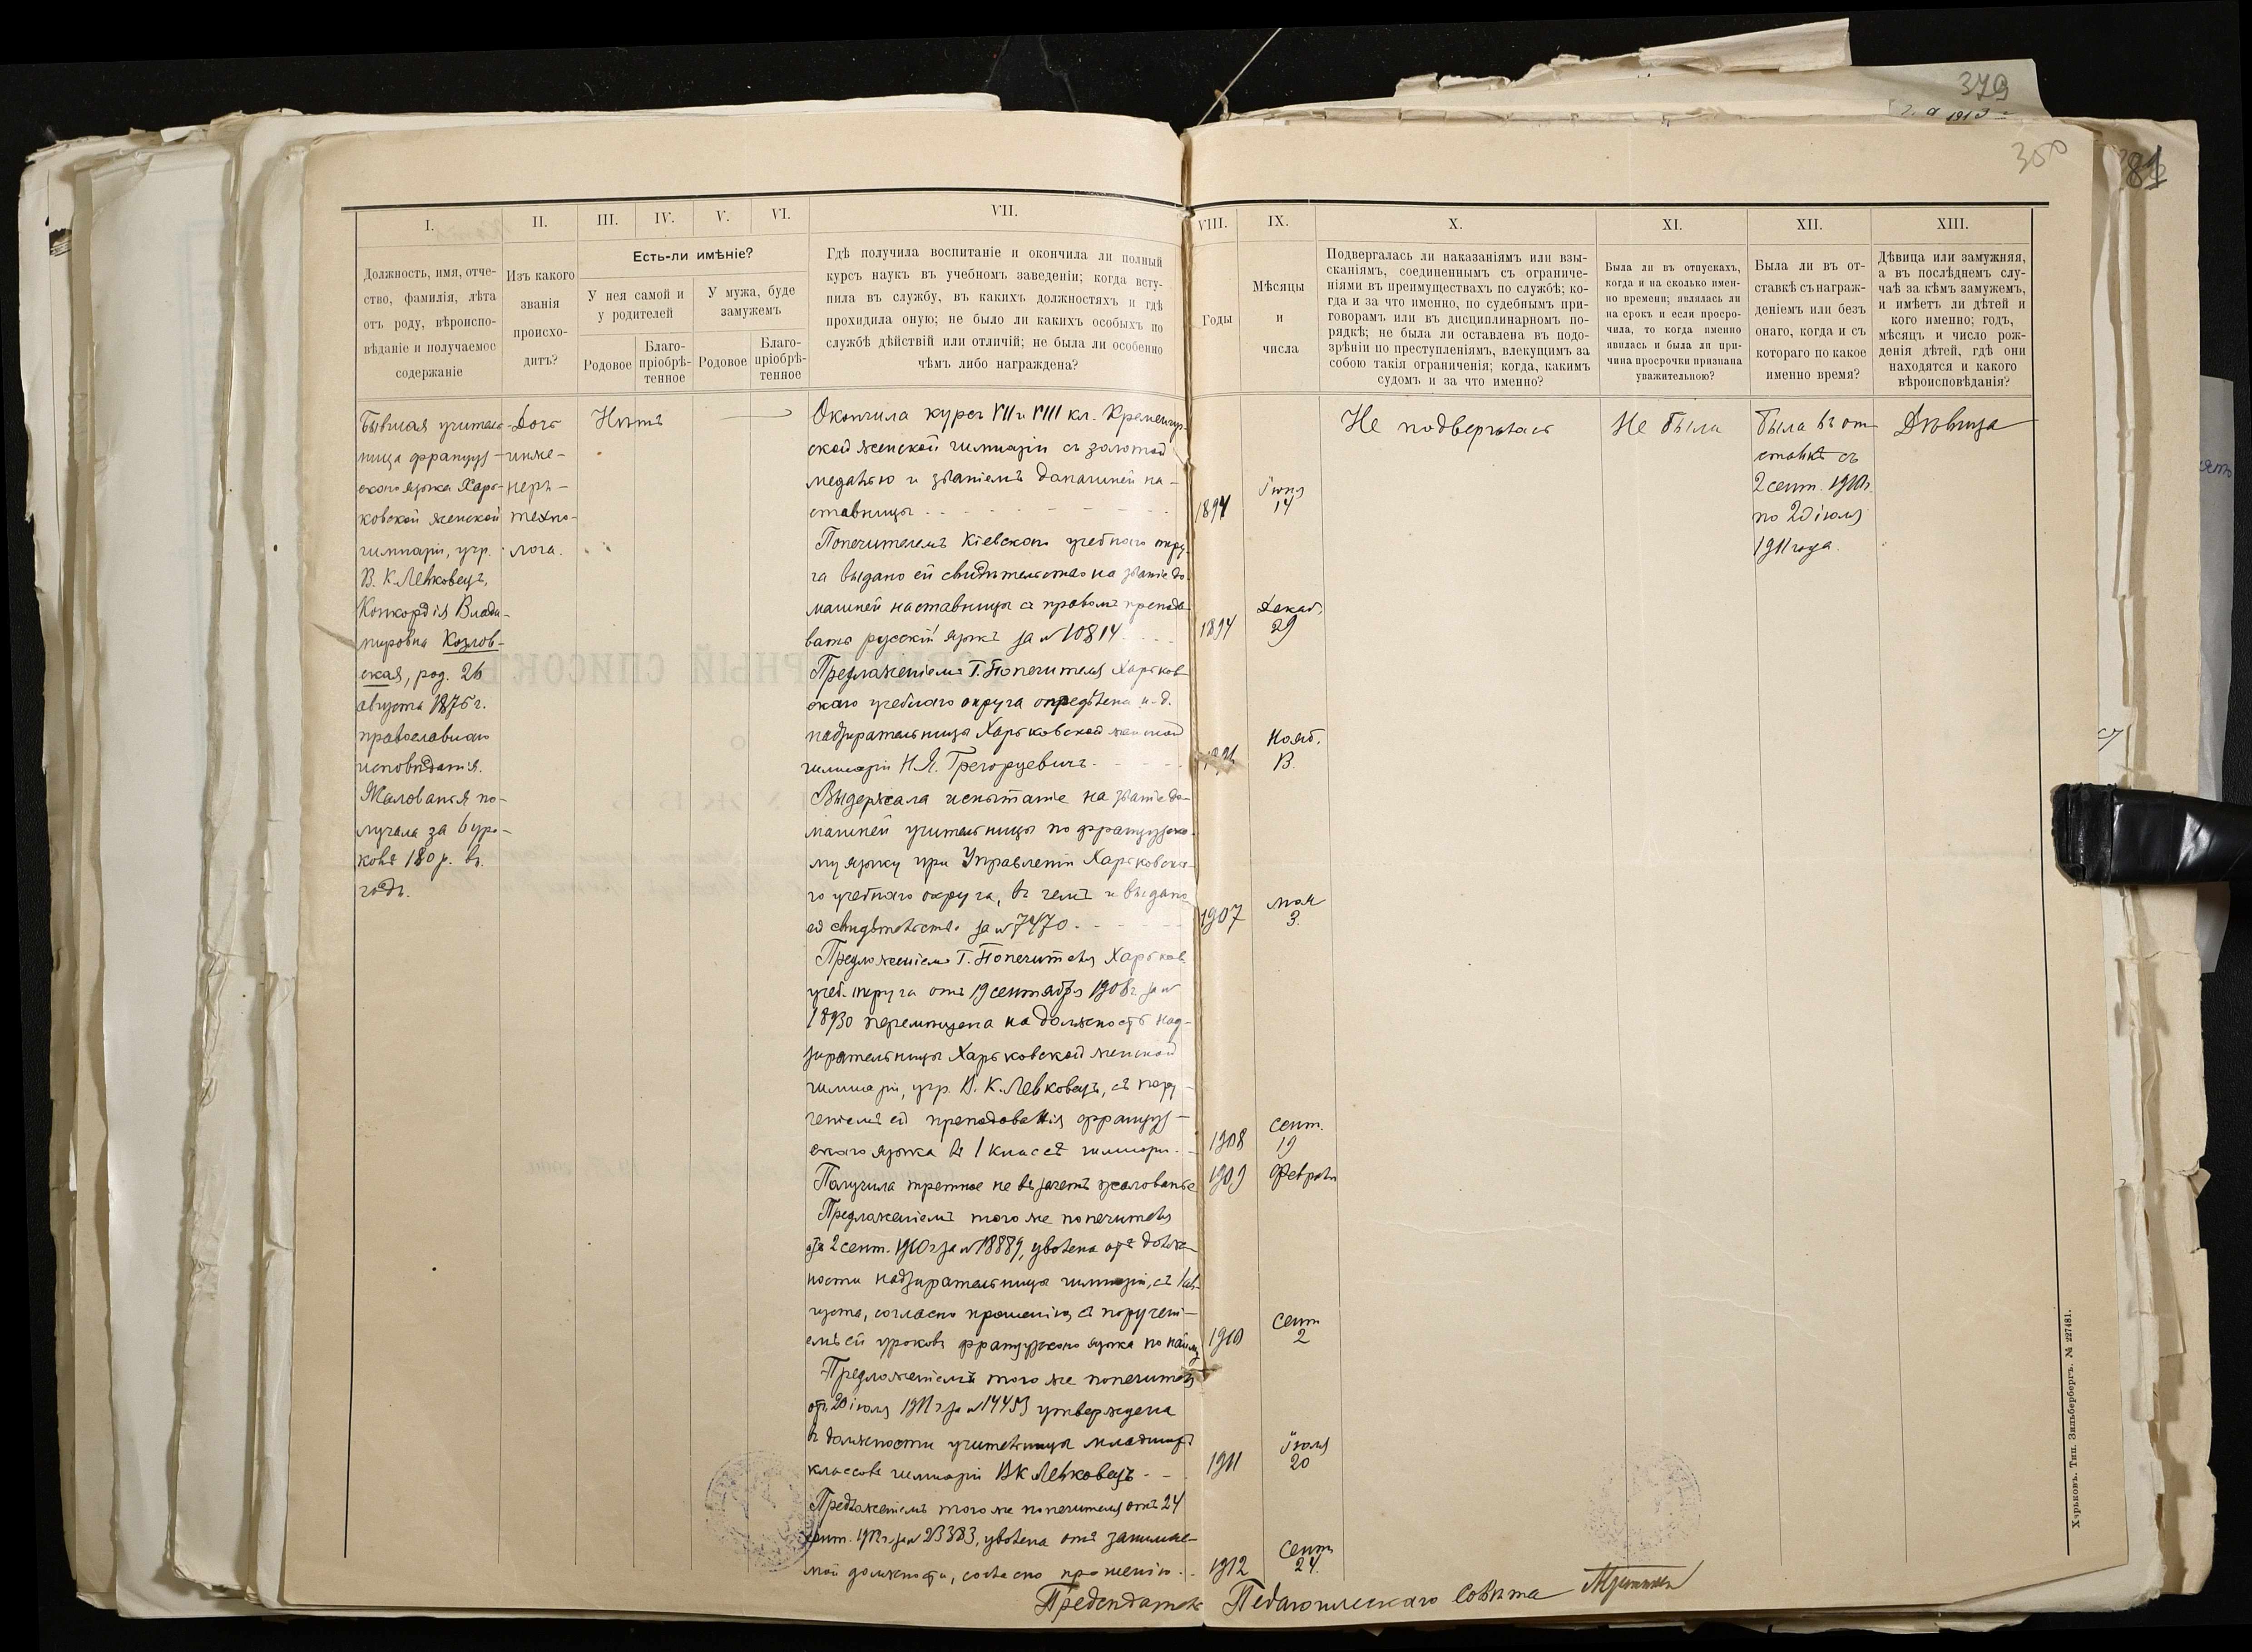 379
1913
350
81
I.
II.
III.
IV.
V.
VI.
VII.
VIII.
IX.
X.
XI.
XII.
XIII.
Должность, имя, отче-
ство, фамилія, лѣта
отъ роду, вѣроиспо-
вѣданіе и получаемое
содержаніе
Изъ какого
званія
происхо-
дитъ?
Есть-ли имѣніе?
У нея самой и
у родителей
У мужа, буде
замужемъ
Родовое
Благо-
пріобрѣ-
тенное
Родовое
Благо-
пріобрѣ-
тенное
Гдѣ получила воспитаніе и окончила ли полный
курсъ наукъ въ учебномъ заведеніи; когда всту-
пила въ службу, въ какихъ должностяхъ и гдѣ
проходила оную; не было ли какихъ особыхъ по
службѣ дѣйствій или отличій; не была ли особенно
чѣмъ либо награждена?
Годы
Мѣсяцы
и
числа
Подвергалась ли наказаніямъ или взы-
сканіямъ, соединеннымъ съ ограниче-
ніями въ преимуществахъ по службѣ; ко-
гда и за что именно, по судебнымъ при-
говорамъ или въ дисциплинарномъ по-
рядкѣ; не была ли оставлена въ подо-
зрѣніи по преступленіямъ, влекущимъ за
собою такія ограниченія; когда, какимъ
судомъ и за что именно?
Была ли въ отпускахъ,
когда и на сколько имен-
но времени; являлась ли
на срокъ и если просро-
чила, то когда именно
явилась и была ли при-
чина просрочки признана
уважительною?
Была ли въ от-
ставкѣ съ награж-
деніемъ или безъ
онаго, когда и съ
котораго по какое
именно время?
Дѣвица или замужняя,
а въ послѣднемъ слу-
чаѣ за кѣмъ замужемъ,
и имѣетъ ли дѣтей и
кого именно; годъ,
мѣсяцъ и число рож-
денія дѣтей, гдѣ они
находятся и какого
вѣроисповѣданія?
Бывшая учитель-
ница француз-
скаго языка Харь-
ковской женской
гимназіи, учр.
В. К. Левковецъ,
Конкордія Влади-
мировна Козлов-
ская, род. 26
августа 1875 г.
православнаго
исповѣданія.
Жалованья по-
лучала за 6 уро-
ковъ 180 р. въ
годъ.
Дочь
инже-
нера-
техно-
лога.
Нѣтъ
Окончила курсъ VII и VIII кл. Кременчуг-
ской женской гимназіи съ золотой
медалью и званіемъ домашней на-
ставницы
Попечителемъ Кіевскаго учебнаго окру-
га выдано ей свидѣтельство на званіе до-
машней наставницы съ правомъ препода-
вать русскій языкъ за № 10814
Предложеніемъ Г. Попечителя Харьков-
скаго учебнаго округа опредѣлена и. д.
надзирательницы Харьковской женской
гимназіи Н. Я. Григорцевичъ
Выдержала испытаніе на званіе до-
машней учительницы по французско-
му языку при Управленіи Харьковска-
го учебнаго округа, въ чемъ и выдано
ей свидѣтельство за № 7470
Предложеніемъ Г. Попечителя Харьков.
учеб. округа отъ 19 сентября 1908 г. за №
18930 перемѣщена на должность над-
зирательницы Харьковской женской
гимназіи, учр. В. К. Левковецъ, съ пору-
ченіемъ ей преподаванія француз-
скаго языка въ 1 классѣ гимназіи.
Получила третное не въ зачетъ жалованье
Предложеніемъ того же попечителя
отъ 2 сент. 1910 г. за № 18889, уволена отъ долж-
ности надзирательницы гимназіи, съ 1 ав-
густа, согласно прошенію, съ поручені-
емъ ей уроковъ французскаго языка по найму
Предложеніемъ того же попечителя
отъ 20 іюля 1911 г. за № 14453 утверждена
въ должности учительницы младшихъ
классовъ гимназіи В К Левковецъ
Предложеніемъ того же попечителя отъ 24
сент. 1912 г. за № 23383, уволена отъ занимае-
мой должности, согласно прошенію.
1894
Іюня
14
1894
Декаб.
29
Нояб.
13.
1907
мая
3.
1908
Сент.
19
1909
Февраль
1910
Сент
2
1911
Іюля
20
1912
Сент
24.
Не подвергалась
Не была
Была въ от-
ставкѣ съ
2 сент. 1910 г.
по 20 іюля
1911 года.
Дѣвица
Предсѣдатель Педагогическаго Совѣта
Харьковъ. Тип. Зильбербергъ. № 227481.